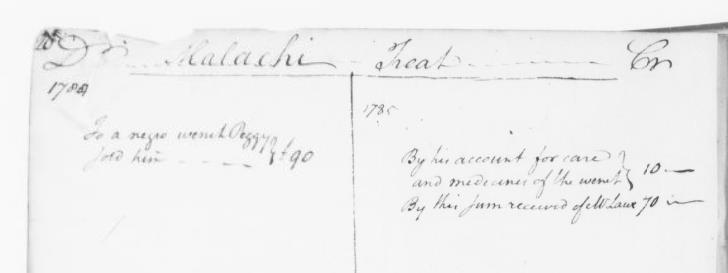 Dr Malachi Treat Cr
1784
To a negro wench Peggy
sold him £90
1785
By his account for care
and medecines of the wench 10
By this sum received of Mr Laux 70